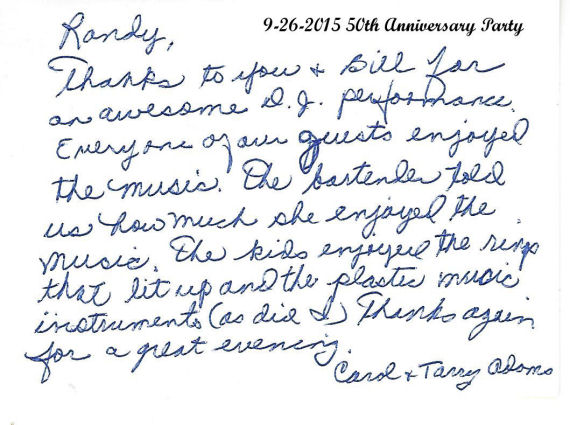 9-26-2015 50th Anniversary Party
Randy,
Thanks to you + Bill for
an awesome D.J. performance.
Everyone of our guests enjoyed
the music. The bartender told
us how much she enjoyed the
music. The kids enjoyed the rings
that lit up and the plastic music
instruments (as did I) Thanks again
for a great evening.
Carol + Tarry Adams